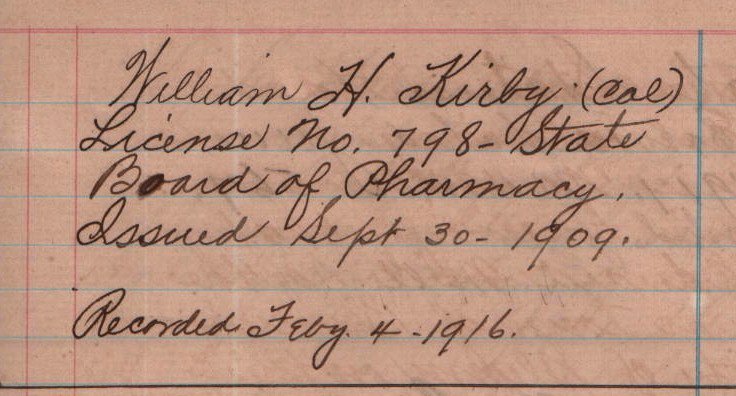 William H. Kirby (Col)
License No. 798- State
Board of Pharmacy,
Issued Sept 30- 1909.
Recorded Feby. 4-1916.